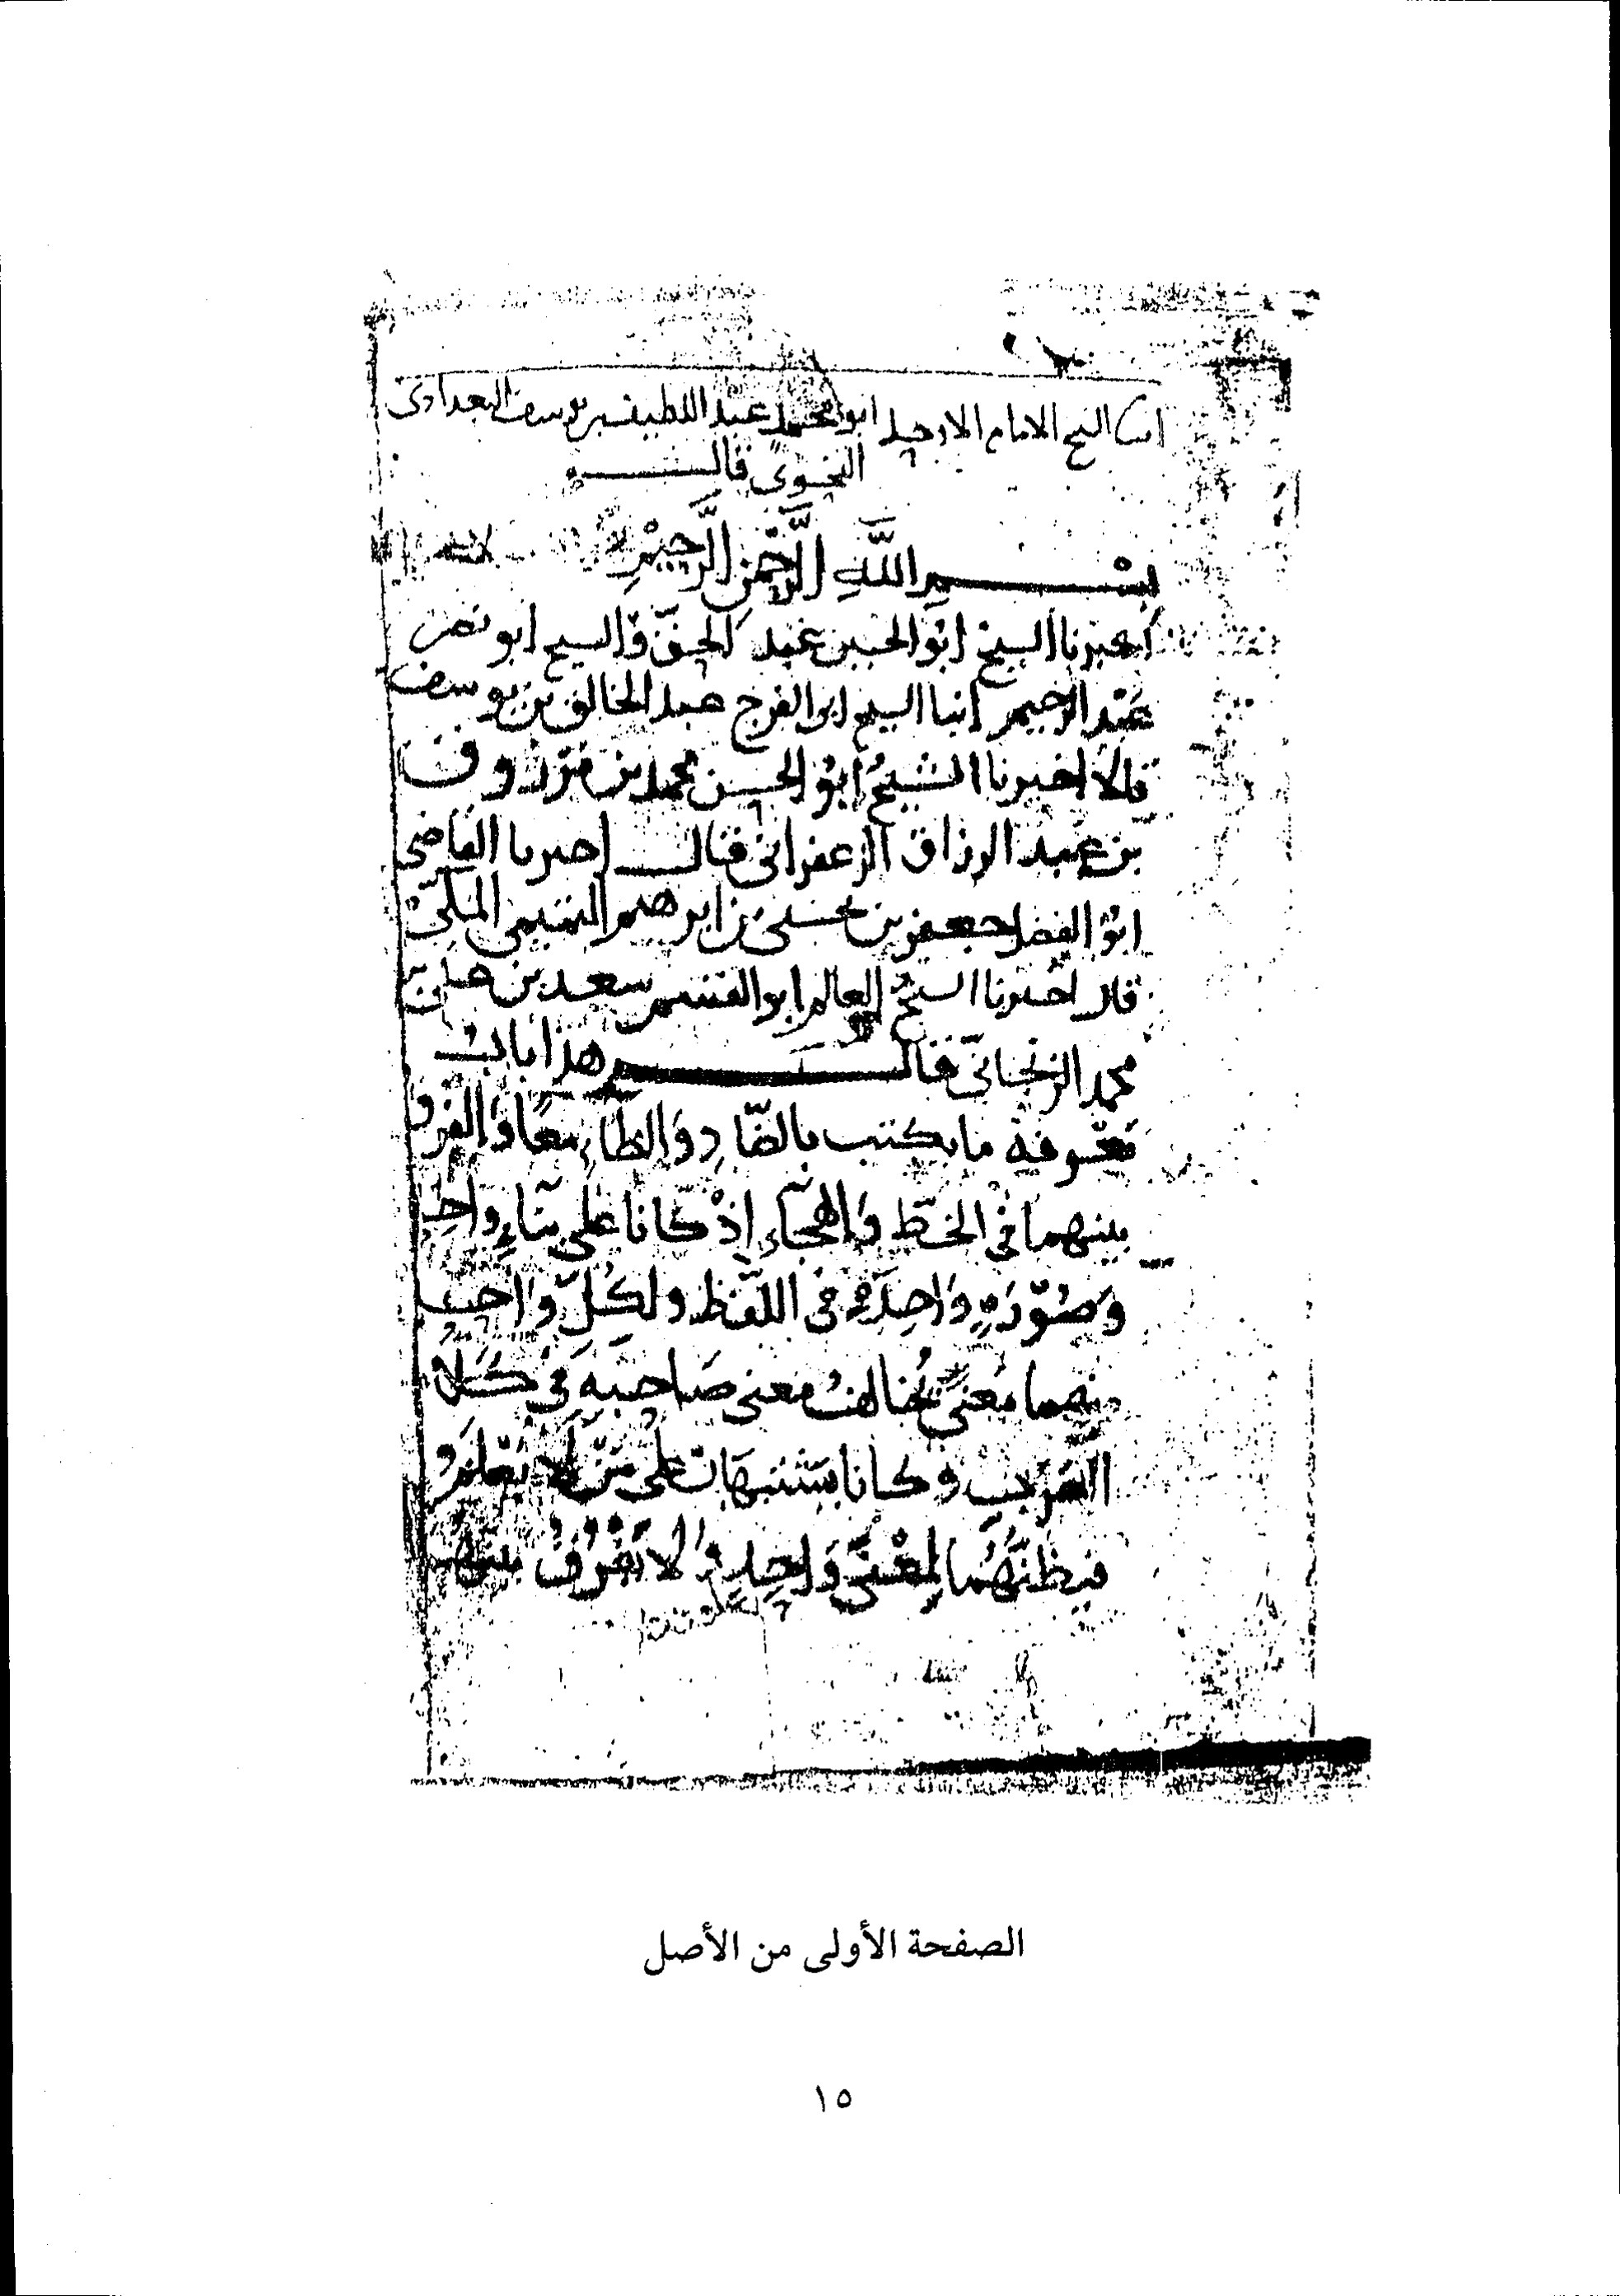 الشيخ الامام الاوحد ابو محمد عبد اللطيف بن يوسف البغدادى
النحوى قال
بِسْمِ اللَّهِ الرَّحْمَنِ الرَّحِيْمِ
اخبرنا الشيخ ابو الحسين عبد الحق والشيخ ابو نصر
عبد الرحيم ابنا الشيخ ابو الفرج عبد الخالق بن يوسف
قالا اخبرنا الشيخ ابو الحسن محمد بن مرزوق
بن عبد الرزاق الزعفرانى قال اخبرنا القاضى
ابو الفضل جعفر بن يحيى بن ابرهيم التميمى المكى
قال اخبرنا الشيخ العالم ابو القسم سعد بن على بن
محمد الزنجانى قال هذا باب
معرفة ما يكتب بالضاد والظاء معا والفرق
بينهما فى الخط والهجاء اذ كانا على بناء واحد
وصورة واحدة فى اللفظ ولكل واحد
منهما معنى يخالف معنى صاحبه فى كلام
العرب وكانا يشتبهان على من لا
فيظنهما لمعنى واحد ولا يفرق بينهما
الصفحة الأولى من الأصل
١٥